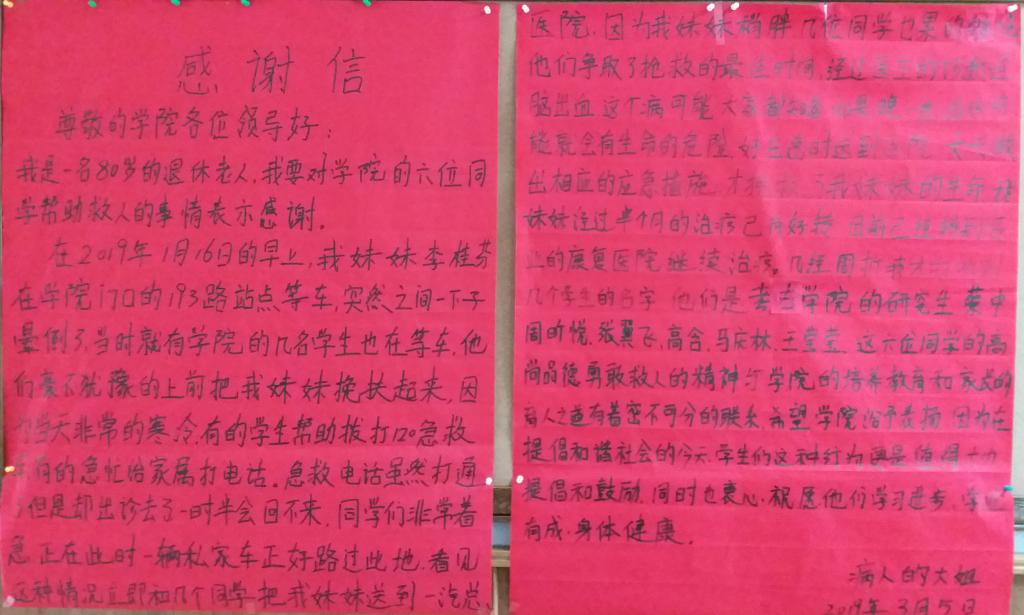 感谢信
尊敬的学院各位领导好：
我是一名80岁的退休老人，我要对学院的六位同
学帮助救人的事情表示感谢。
在2019年1月16日的早上，我妹妹李桂芬
在学院门口的193路站点等车，突然之间一下子
晕倒了，当时就有学院的几名学生也在等车，他
们毫不犹豫的上前把我妹妹搀扶起来，因
为当天非常的寒冷，有的学生帮助拨打120急救
车有的急忙给家属打电话。急救电话虽然打通
了但是却出诊去了一时半会回不来，同学们非常着
急，正在此时一辆私家车正好路过此地，看见
这种情况立即和几个同学把我妹妹送到一汽总
医院，因为我妹妹稍胖几位同学也累的
他们争取了抢救的最佳时间，经过
脑出血这个病可能大家都知道
能就会有生命的危险，好在及时送到医院，大夫做
出相应的应急措施，才 了我妹妹的生命
妹妹经过半个月的治疗已有好转 目前已
业的康复医院继续治疗。几经周折我才
几个学生的名字 他们是考古学院的研究生 中
周昕悦，张翼飞，高含，马庆林，王莹莹，这六位同学的高
尚品德勇敢救人的精神与学院的培养教育和家长的
育人之道有着密不可分的联系，希望学院给予表扬，因为在
提倡和谐社会的今天，学生的这种行为更是值得大力
提倡和鼓励，同时也衷心祝愿他们学习进步，学业
有成，身体健康。
病人的大姐
2019年3月5日